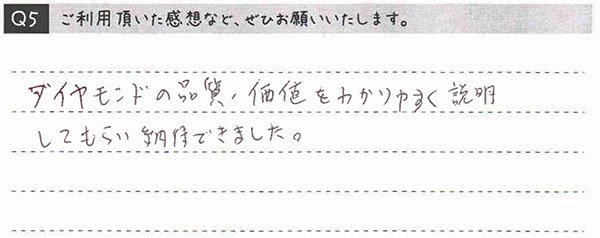 Q5 ご利用頂いた感想など、ぜひお願いいたします。
ダイヤモンドの品質、価値をわかりやすく説明
してもらい納得できました。